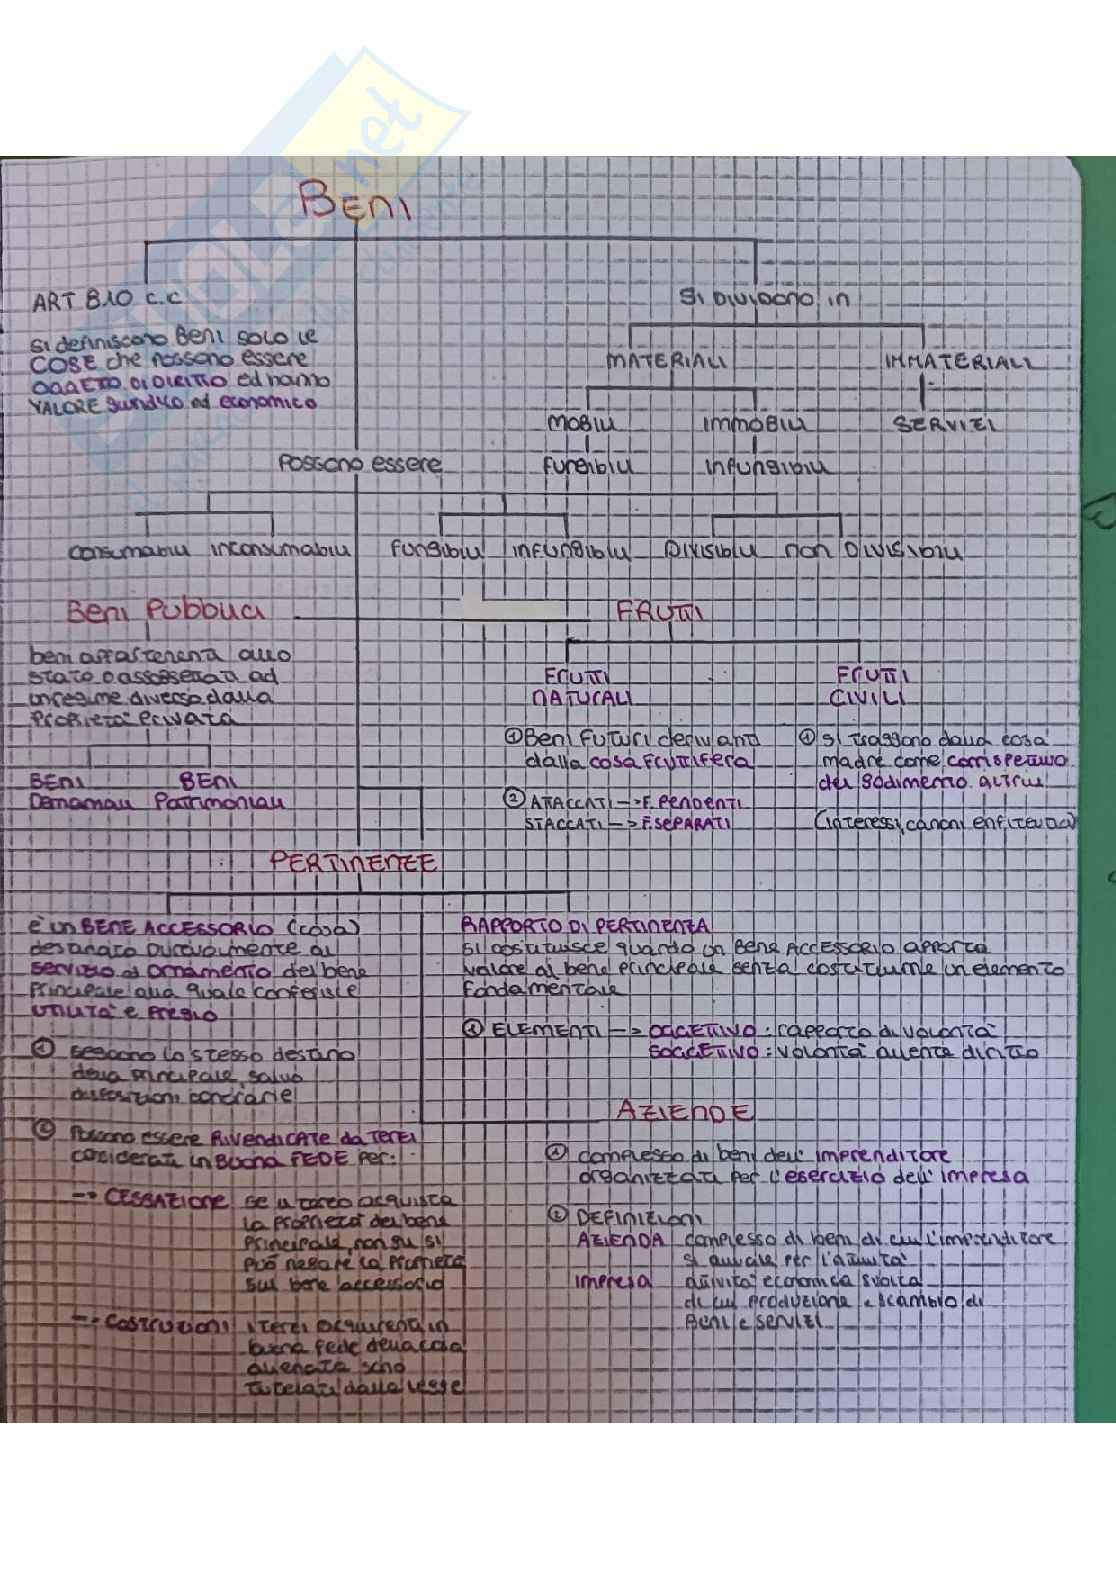 BENI
ART 810 c.c
Si dividono in
Si definiscono Beni solo le
COSE che possono essere
OGGETTO DI DIRITTO ed hanno
VALORE giuridico ed economico
MATERIALI
IMMATERIALI
MOBILI
IMMOBILI
SERVIZI
Possono essere
Fungibili
Infungibili
Consumabili
inconsumabili
Fungibili
Infungibili
Divisibili
non Divisibili
Beni Pubblici
FRUTTI
beni appartenenti allo
stato o assoggettati ad
un regime diverso dalla
Proprietà Privata
FRUTTI
NATURALI
FRUTTI
CIVILI
① Beni Futuri derivanti
dalla cosa FRUTTIFERA
② ATTACCATI → F. PENDENTI
STACCATI → F. SEPARATI
① si traggono dalla cosa
madre come corrispettivo
del godimento altrui
(interessi, canoni enfiteutici)
BENI
Demaniali
BENI
Patrimoniali
PERTINENZE
è un BENE ACCESSORIO (cosa)
destinato durevolmente al
servizio od ornamento del bene
Principale alla quale conferisce
UTILITÀ e PREGIO
① seguono lo stesso destino
della principale, salvo
disposizioni contrarie
② Possono essere RIVENDICATE da TERZI
considerati in BUONA FEDE per:
→ CESSAZIONE se il terzo acquista
la proprietà del bene
Principale, non gli si
può negare la proprietà
sul bene accessorio
→ COSTRUZIONI i terzi acquirenti in
buona fede della cosa
alienata sono
tutelati dalla legge
RAPPORTO DI PERTINENZA
si costituisce quando un BENE ACCESSORIO apporta
valore al bene principale senza costituirne un elemento
fondamentale
① ELEMENTI → OGGETTIVO: rapporto di volontà
SOGGETTIVO: volontà avente diritto
AZIENDE
① complesso di beni dell'imprenditore
organizzati per l'esercizio dell'impresa
② DEFINIZIONI
AZIENDA complesso di beni di cui l'imprenditore
si avvale per l'attività
Impresa attività economica svolta
di cui produzione e scambio di
Beni e servizi